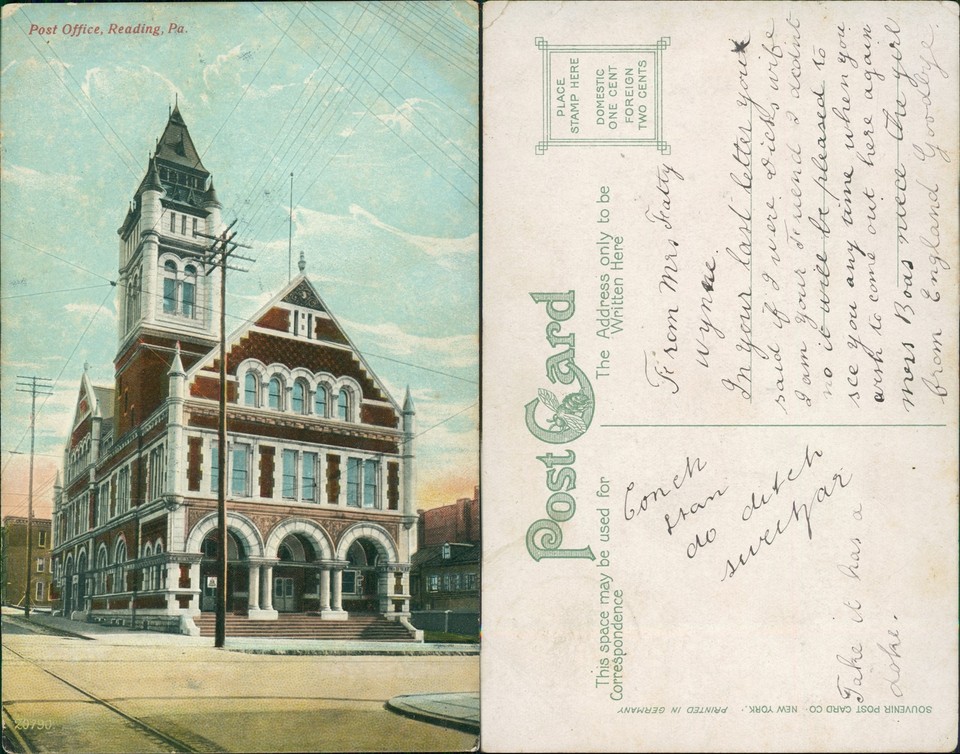 Post Office, Reading, Pa.
20790.
PLACE
STAMP HERE
DOMESTIC
ONE CENT
FOREIGN
TWO CENTS
Post Card
The Address only to be
Written Here
From Mrs Fatty
Wynne.
In your last letter you
said if I were Dicks wife
I am your Friend I
no it will be pleased to
see you any time when you
wish to come out here again
Mers Boas niece the girl
from England Goodbye.
This space may be used for
Correspondence
Conch
stan
do ditch
Take it has a
Joke.
SOUVENIR POST CARD CO. NEW YORK. PRINTED IN GERMANY